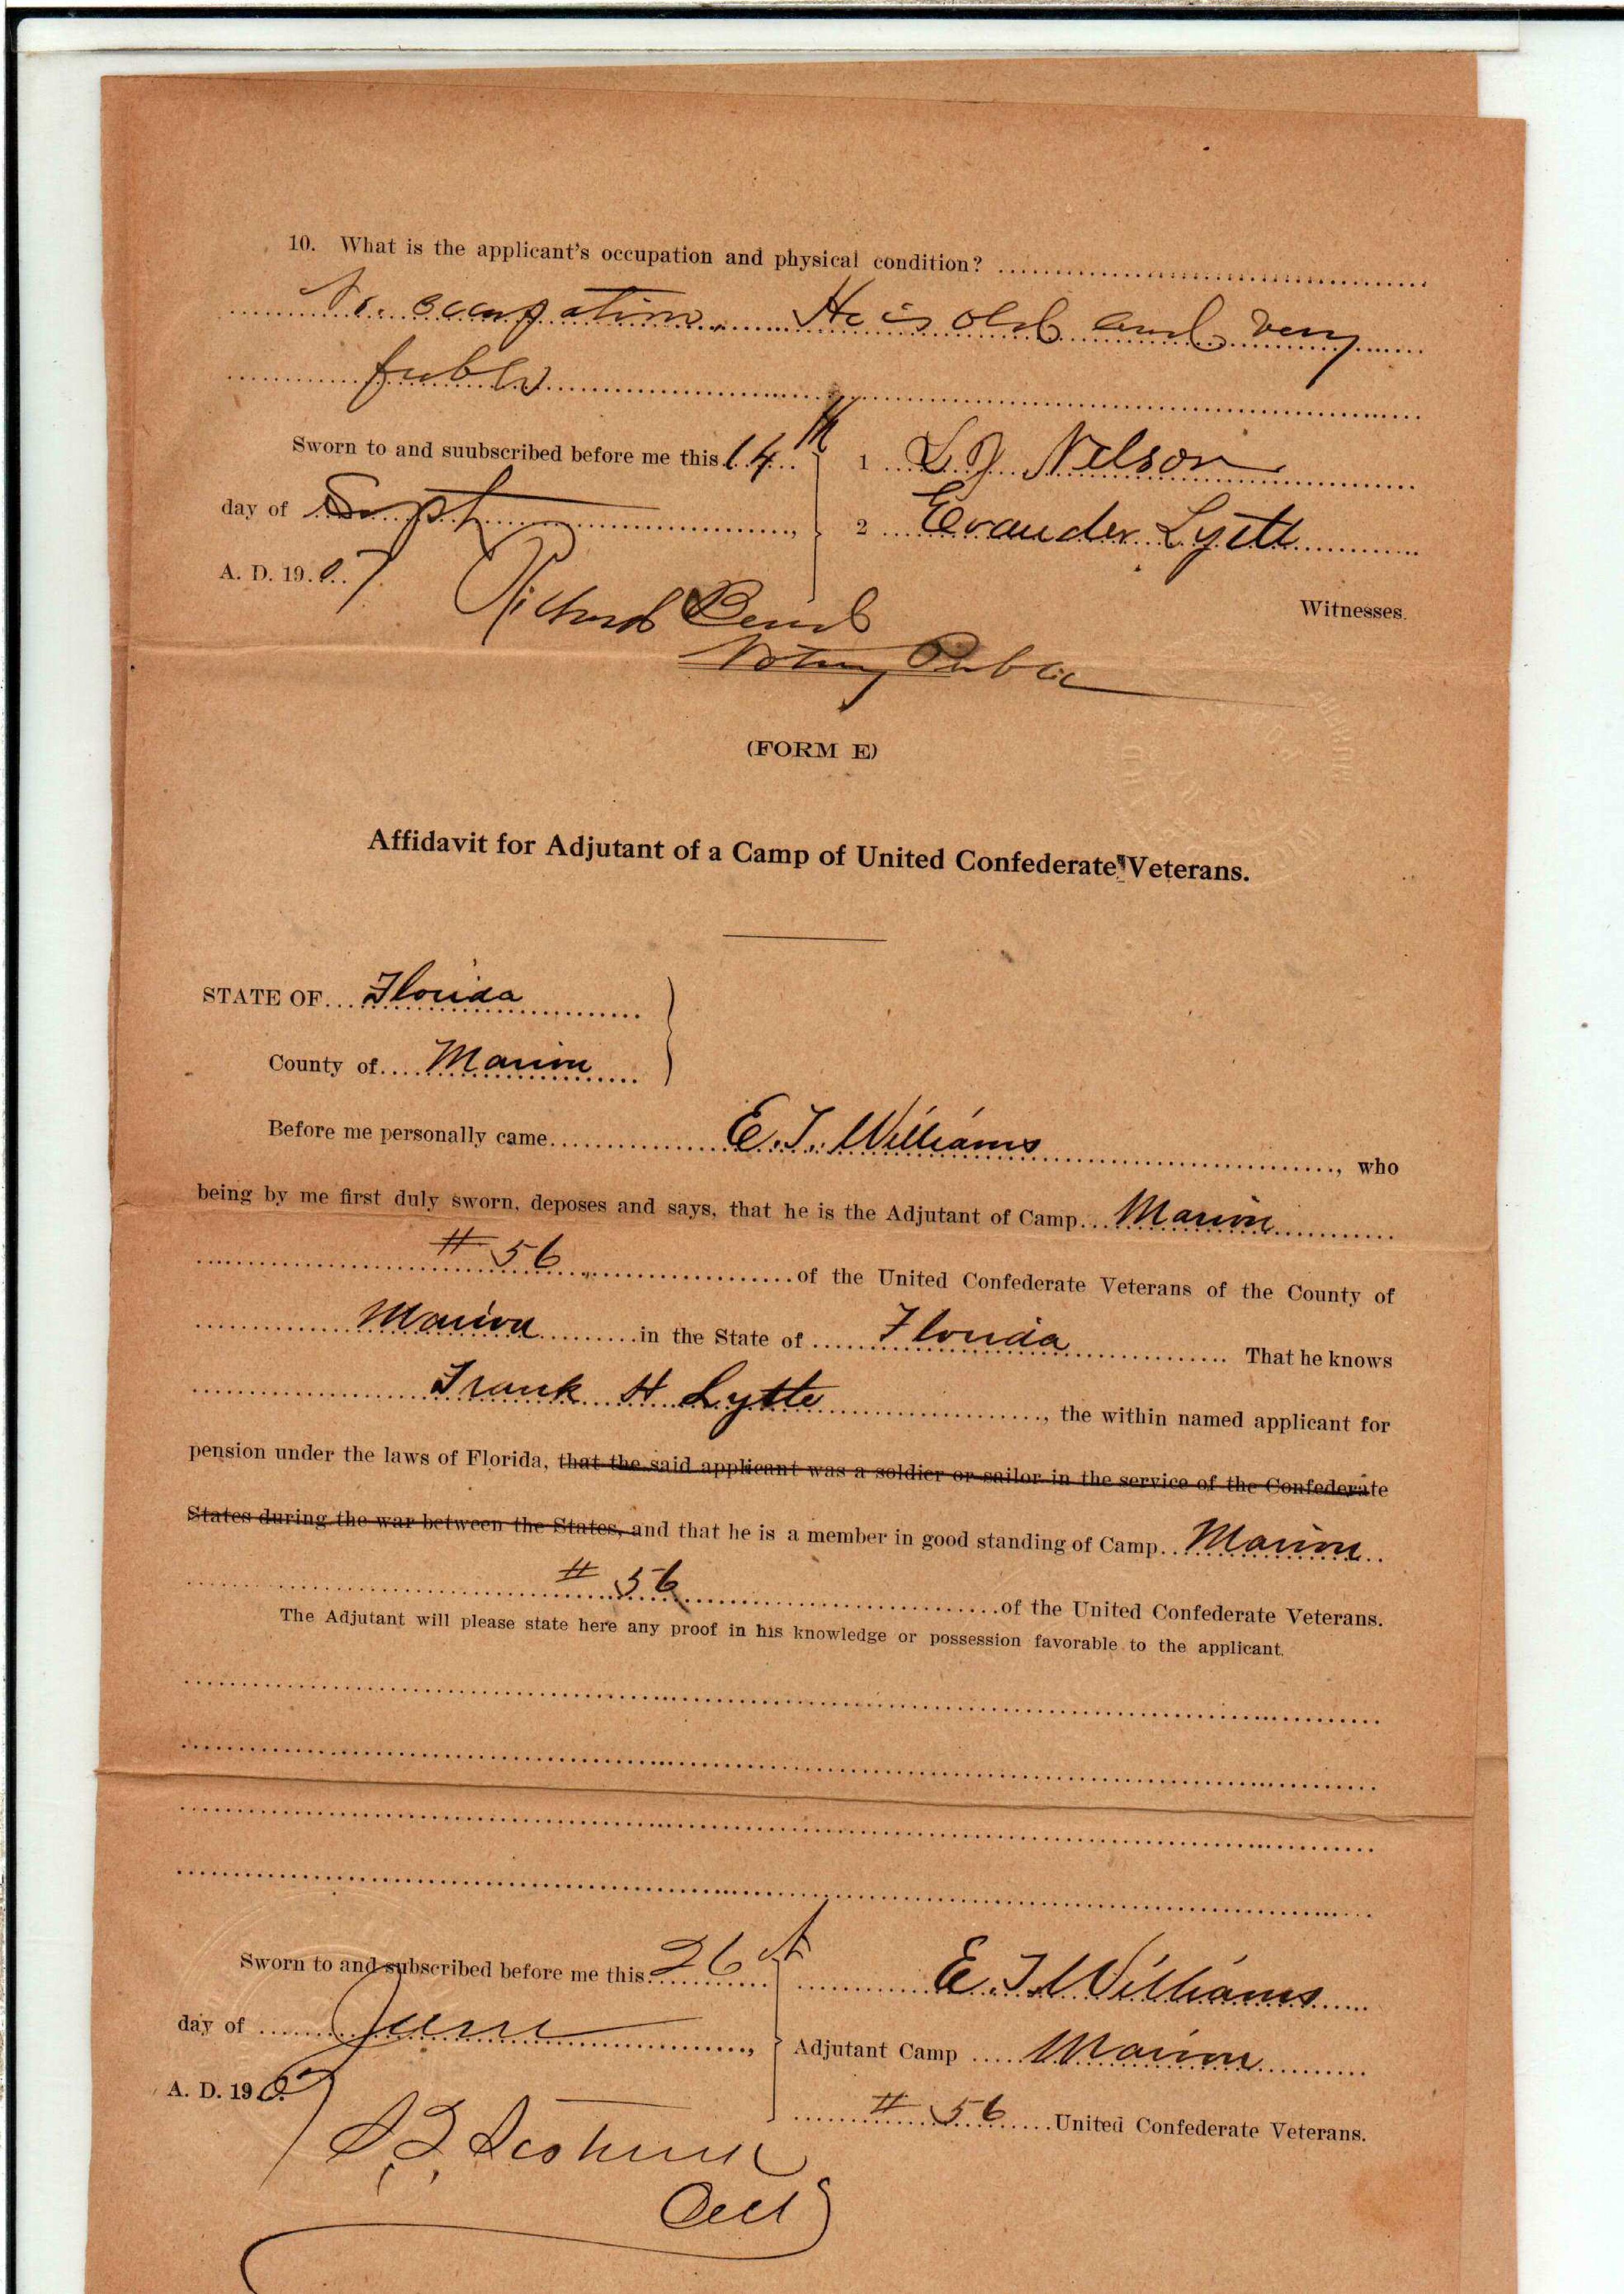 10. What is the applicant's occupation and physical condition?
No occupation. He is old and very
feeble
Sworn to and suubscribed before me this 14th
1 L J Nelson
day of Sept,
2 Evander Lytle
A. D. 1907
Richard
Witnesses.
Notary Public
(FORM E)
Affidavit for Adjutant of a Camp of United Confederate Veterans.
STATE OF Florida
County of Marion
Before me personally came E. T. Williams, who
being by me first duly sworn, deposes and says, that he is the Adjutant of Camp Marion
# 56 of the United Confederate Veterans of the County of
Marion in the State of Florida. That he knows
Frank H Lytle, the within named applicant for
pension under the laws of Florida, that the said applicant was a soldier or sailor in the service of the Confederate
States during the war between the States, and that he is a member in good standing of Camp Marion
# 56 of the United Confederate Veterans.
The Adjutant will please state here any proof in his knowledge or possession favorable to the applicant.
Sworn to and subscribed before me this 26
E. T. Williams
day of June,
Adjutant Camp Marion
A. D. 1907
# 56 United Confederate Veterans.